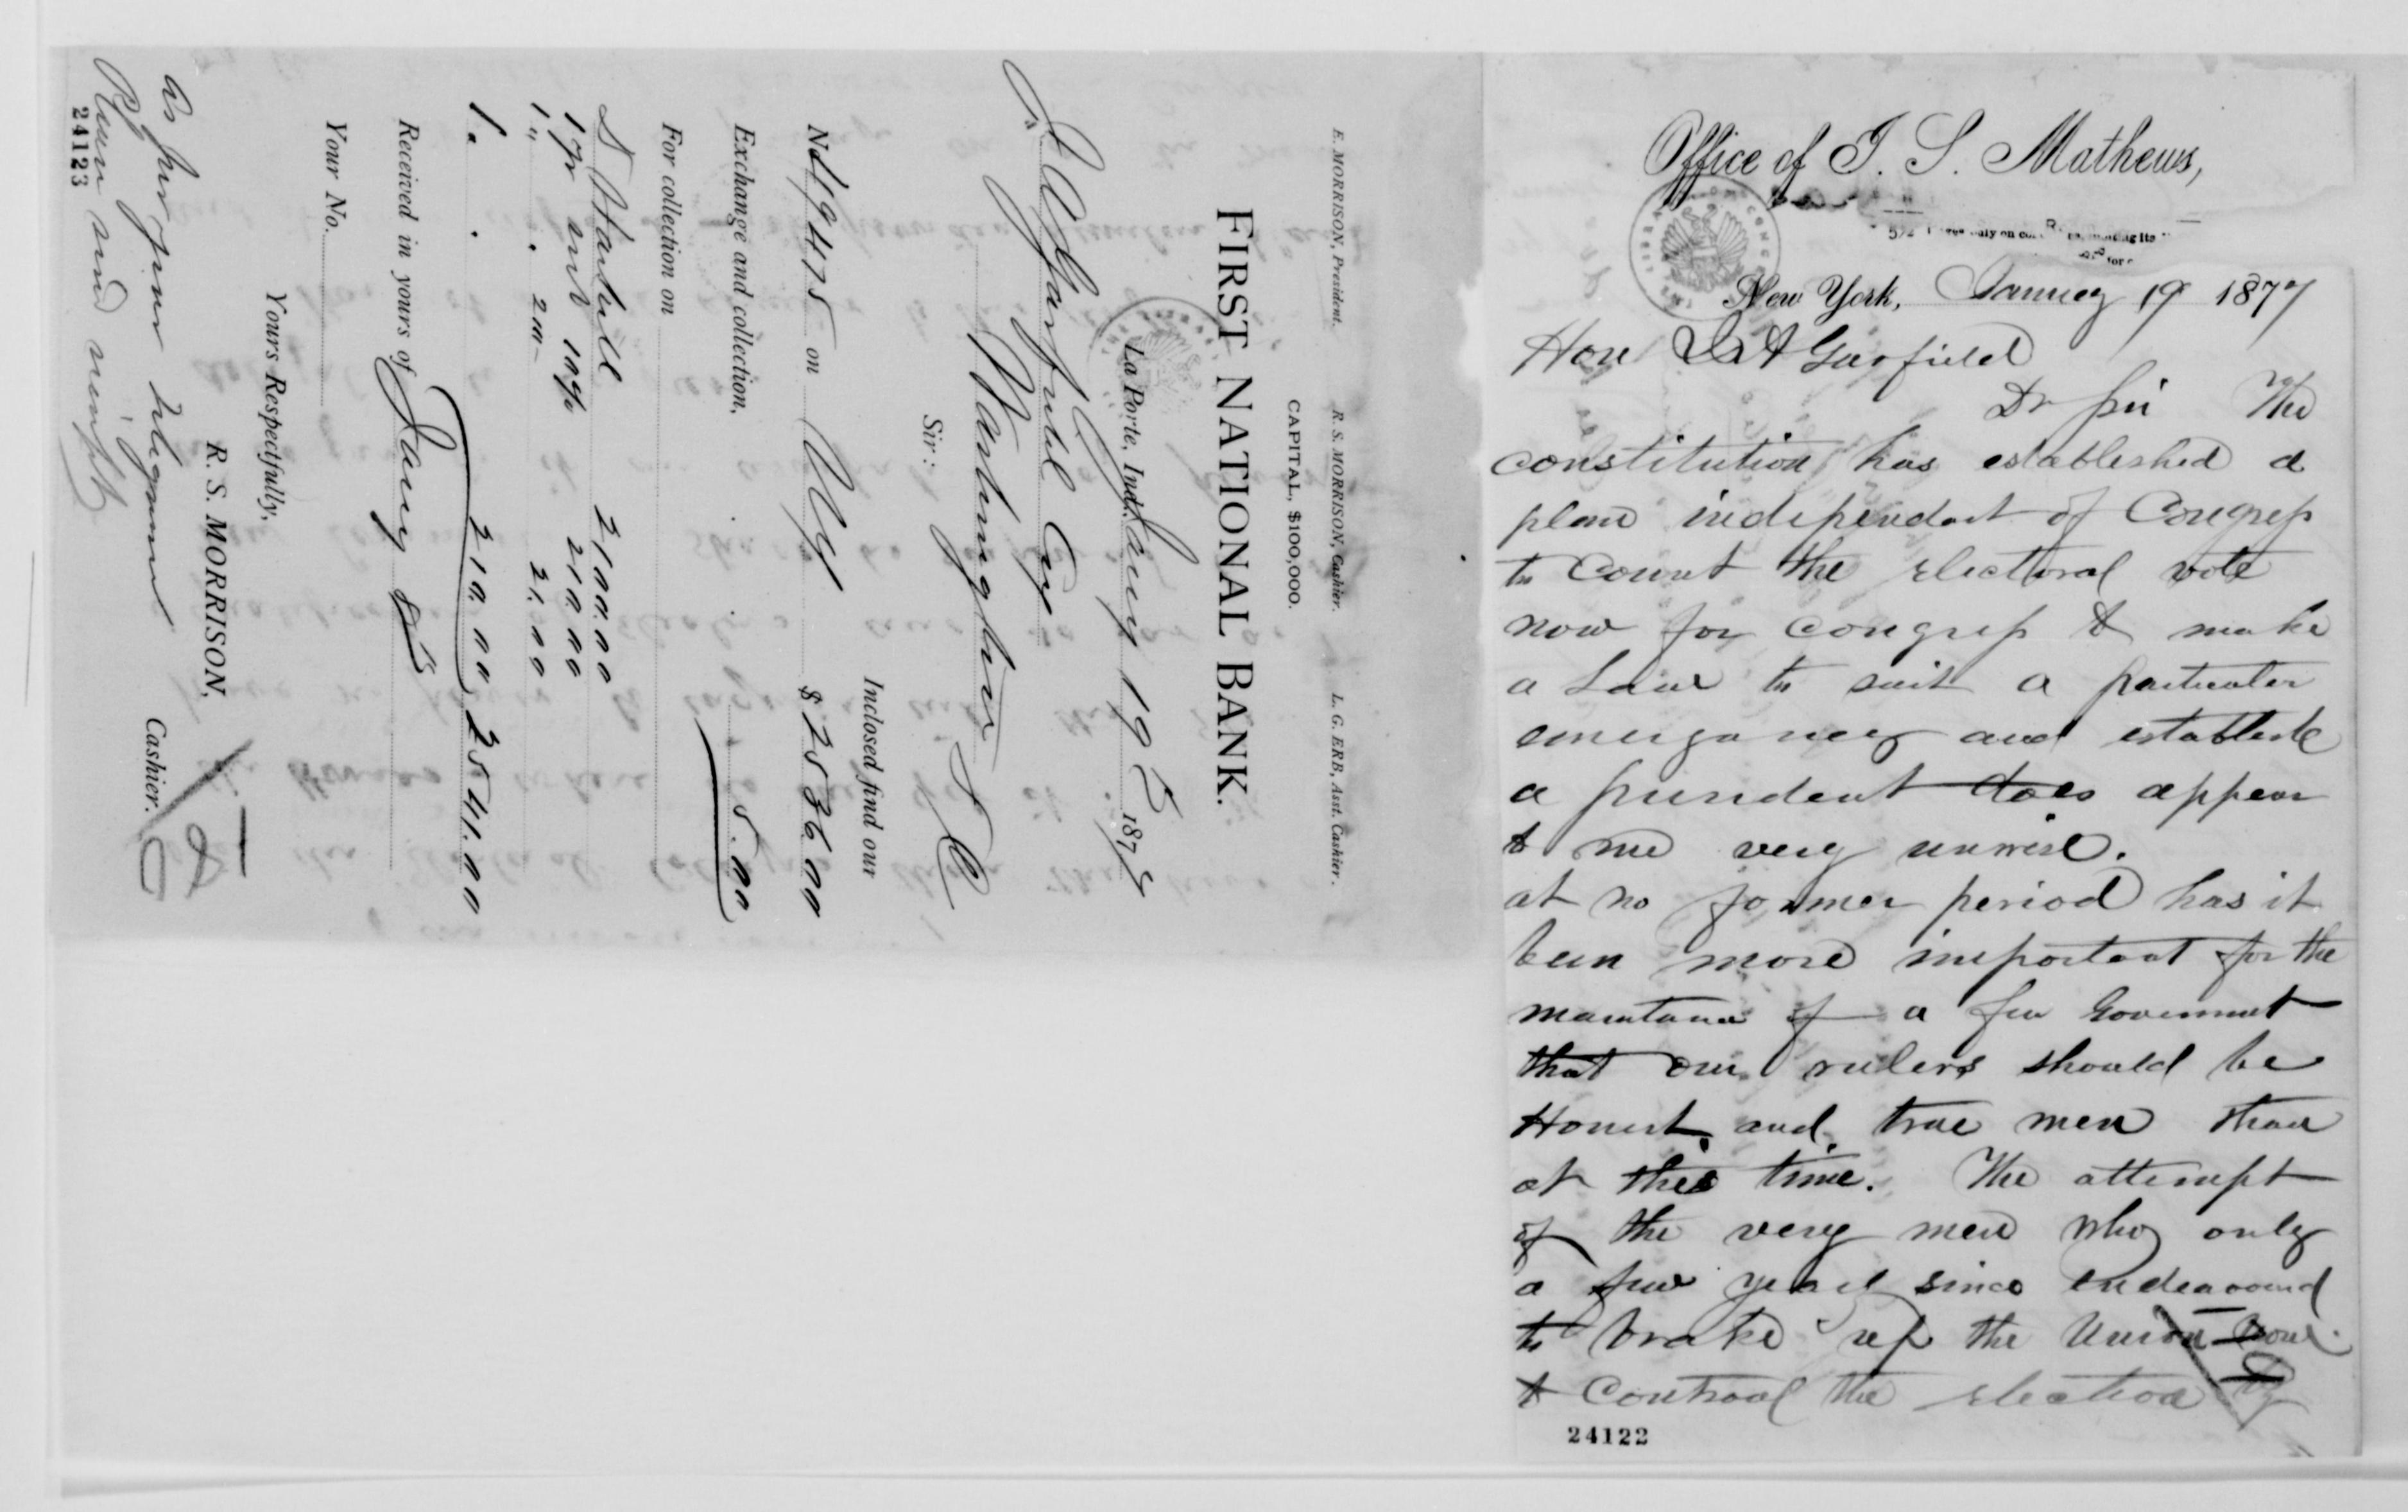 E. MORRISON, President. R. S. MORRISON, Cashier. L. G. ERB, Asst. Cashier.
CAPITAL, $100,000.
FIRST NATIONAL BANK.
La Porte, Ind. Jany 19 187
J A Garfield
Washington D C
Sir: Inclosed find our
No 19475 on NY $2536.00
Exchange and collection, 5.00
For collection on
2100.00
210.00
21.00
210.00 2541.00
Received in yours of Jany
Your No.
Yours Respectfully,
R. S. MORRISON,
Cashier.
As per your telegram
24123
Office of T. S. Mathews,
New York, January 19 1877
Hon J A Garfield
Dr Sir The
constitution has established a
plan independant of Congress
to Count the electoral vote
now for congress to make
a Law to suit a particular
emergancy and establish
a president does appear
to me very unwise.
at no former period has it
been more important for the
of a Government
that our rulers should be
Honest and true men than
at this time. The attempt
of the very men who only
a few years since endeavourd
to brake up the Union now
to Controal the election by
24122